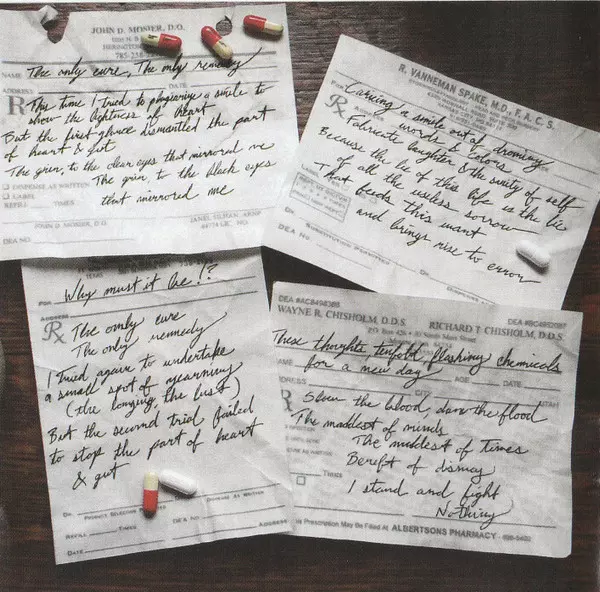 JOHN D. MOSIER, D.O.
NAME The only cure, The only remedy
ADDRESS DATE
R This time I tried to plagiarize a smile to
show the lightness of heart
But the first glance dismantled the part
of heart & gut
The grin, to the clear eyes that mirrored me
The grin, to the black eyes
that mirrored me
DISPENSE AS WRITTEN
LABEL
REFILL TIMES
JOHN D. MOSIER, D.O.
DEA NO.
R. VANNEMAN SPAKE, M.D., F.A.C.S.
FOR
ADDRESS
Rx Carving a smile out of drawing
words & colours
Fabricate laughter & the sanity of self
Because the lie of this life is the lie
of all the useless sorrow
That feeds this want
and brings rise to error
LABEL
DR.
SUBSTITUTION PERMITTED
DEA NO.
FOR Why must it be!?
ADDRESS
Rx The only cure
The only remedy
I tried again to undertake
a small spot of yearning
(the longing, the lust)
But the second trial failed
to stop the part of heart
& gut
DR.
PRODUCT SELECTION
DISPENSE AS WRITTEN
REFILL TIMES DEA NO.
ADDRESS
DATE
DEA #AC8498388
WAYNE R. CHISHOLM, D.D.S. RICHARD T. CHISHOLM, D.D.S.
These thoughts tenfold flashing chemicals
for a new day
AGE DATE
Slow the blood, dam the flood
The maddest of minds
The muddest of times
Bereft of dismay
TIMES
I stand and fight
Nothing
Prescription May Be Filled At ALBERTSONS PHARMACY